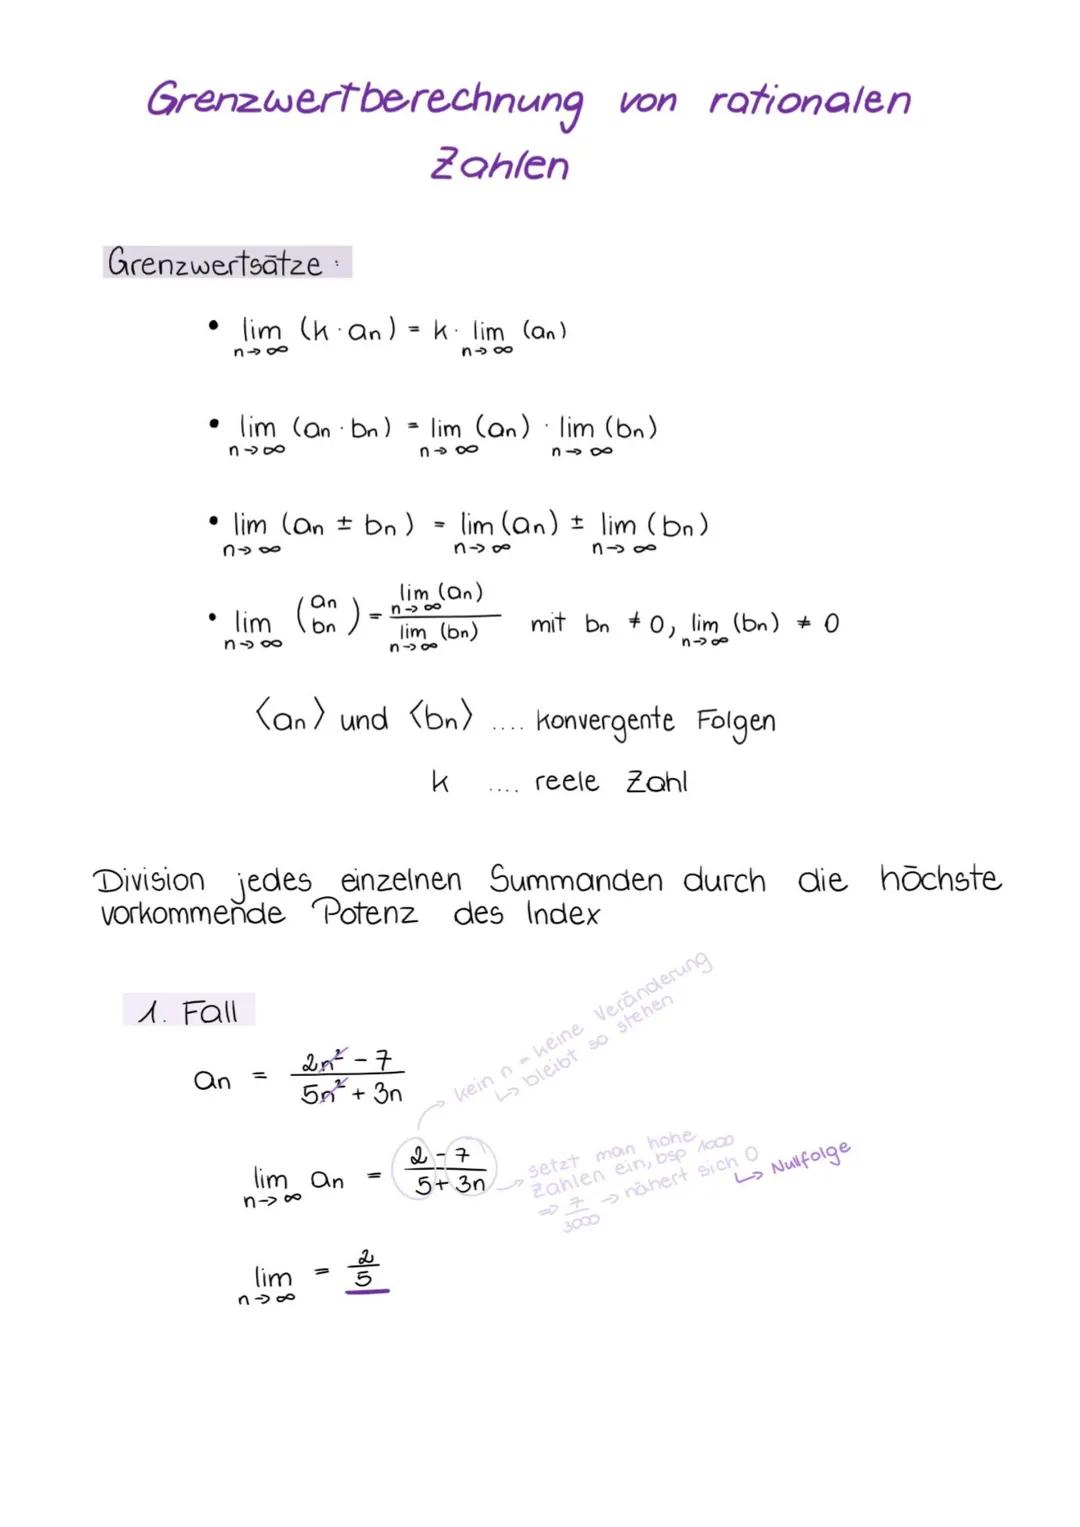 Grenzwertberechnung von rationalen
Zahlen
Grenzwertsätze :
• lim (k · an) = k · lim (an)
n→∞ n→∞
• lim (an · bn) = lim (an) · lim (bn)
n→∞ n→∞ n→∞
• lim (an ± bn) = lim (an) ± lim (bn)
n→∞ n→∞ n→∞
• lim (an bn) = lim (an) / lim (bn) mit bn ≠ 0, lim (bn) ≠ 0
n→∞ n→∞ n→∞ n→∞
⟨an⟩ und ⟨bn⟩ .... konvergente Folgen
k .... reele Zahl
Division jedes einzelnen Summanden durch die höchste
vorkommende Potenz des Index
1. Fall
an = 2n² - 7 / 5n² + 3n
kein n = keine Veränderung
↳ bleibt so stehen
lim an = 2 - 7 / 5 + 3n
n→∞
setzt man hohe
Zahlen ein, bsp 1000
⇒ 7/3000 → nähert sich 0
↳ Nullfolge
lim = 2/5
n→∞